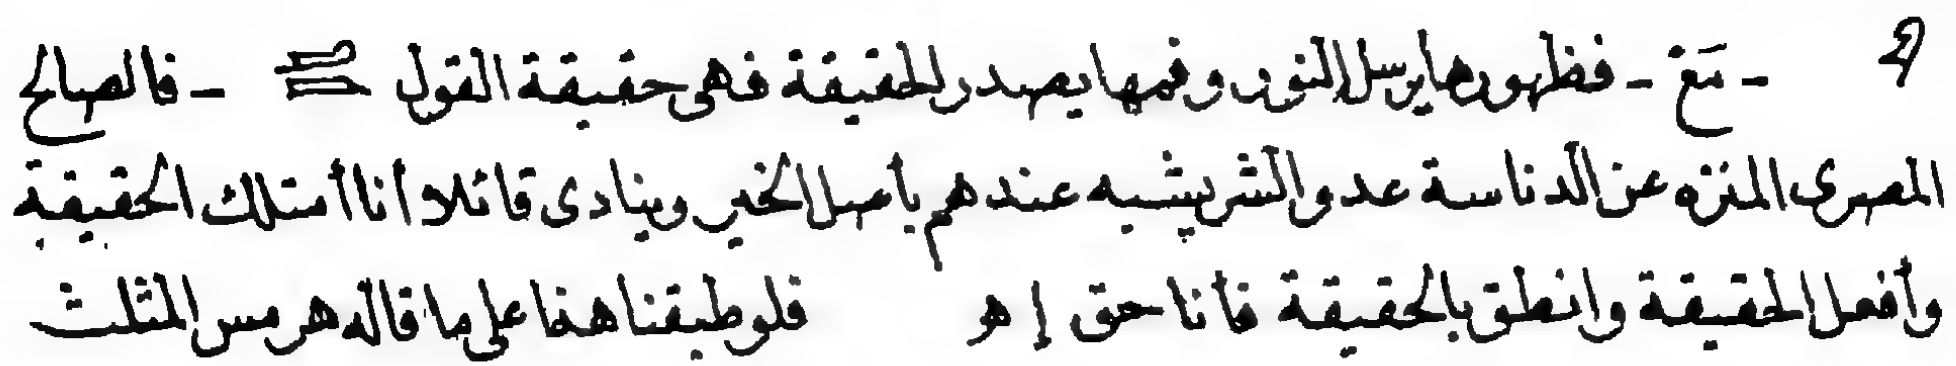 - مَع - فظهورها يرسل النور وفمها يصدر الحقيقة فهى حقيقة القول - فالصالح
المصرى المنزه عن الدناسة عدو الشر يشبه عندهم بأصل الخير وينادى قائلا أنا أمتلك الحقيقة
وأفعل الحقيقة وانطق بالحقيقة فأنا حق إ هو فلو طبقنا هذا على ما قاله هرمس المثلث